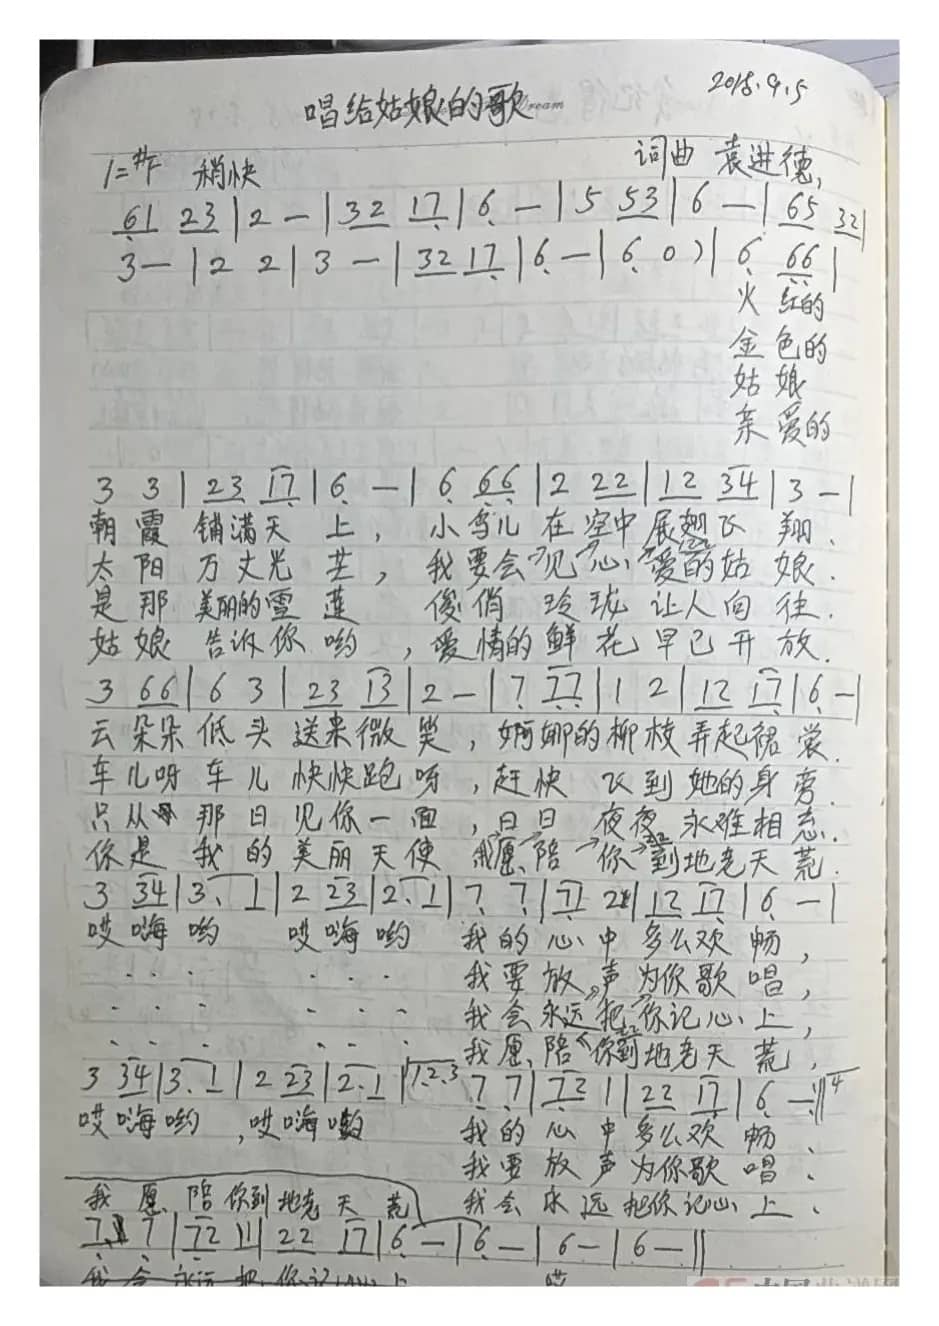 2018.9.5
唱给姑娘的歌
1=#F 稍快 词曲 袁进德
61 23 | 2 — | 32 17 | 6 — | 5 53 | 6 — | 65 32 |
3 — | 2 2 | 3 — | 32 17 | 6 — | 6 0 ) | 6 66 |
火 红的
金 色的
姑 娘
亲 爱的
3 3 | 23 17 | 6 — | 6 66 | 2 22 | 12 34 | 3 — |
朝 霞 铺满天 上, 小鸟儿 在 空中 展翅飞 翔.
太 阳 万丈光 芒, 我要会见心爱的姑 娘.
是 那 美丽的雪 莲 俊俏 玲珑 让人向 往.
姑 娘 告诉你 哟, 爱情的 鲜 花 早已开 放.
3 66 | 6 3 | 23 13 | 2 — | 7 77 | 1 2 | 12 17 | 6 — |
云 朵朵 低 头 送来微 笑, 婀娜的 柳 枝 弄起裙 裳.
车 儿呀 车 儿 快快跑 呀, 赶快 飞 到 她的身 旁.
只 从 那 日 见你一 面, 日日 夜夜 永难相 忘.
你 是 我 的 美丽天 使 我愿陪你到地老天 荒.
3 34 | 3. 1 | 2 23 | 2. 1 | 7 7 | 71 2 | 12 17 | 6 — |
哎 嗨 哟 哎 嗨 哟 我 的 心 中 多么欢 畅,
我 要 放 声 为你歌 唱,
我 会 永远 把 你记心 上,
我 愿 陪 你到地老天 荒,
3 34 | 3. 1 | 2 23 | 2. 1 | 1.2.3 7 7 | 72 1 | 22 17 | 6 — 4
哎 嗨 哟, 哎 嗨 我 的 心 中 多么欢 畅.
我 要 放 声 为你歌 唱.
我 愿 陪 你到 地老 天 荒 我 会 永 远 把你记心 上.
7 7 | 72 11 | 22 17 | 6 — | 6 — | 6 — | 6 — ||
我 会 永远 把 你记心 上 哎